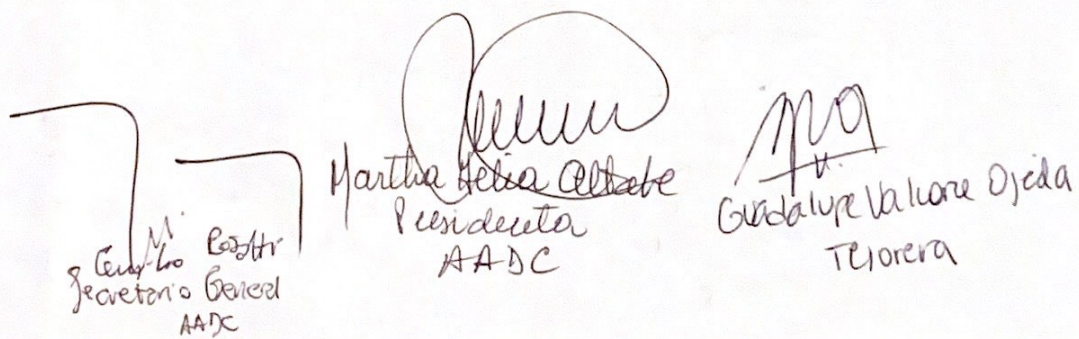 Rosatti
Secretario General
AADC
Martha Helia Altabe
Presidenta
AADC
Guadalupe Valcarce Ojeda
Tesorera